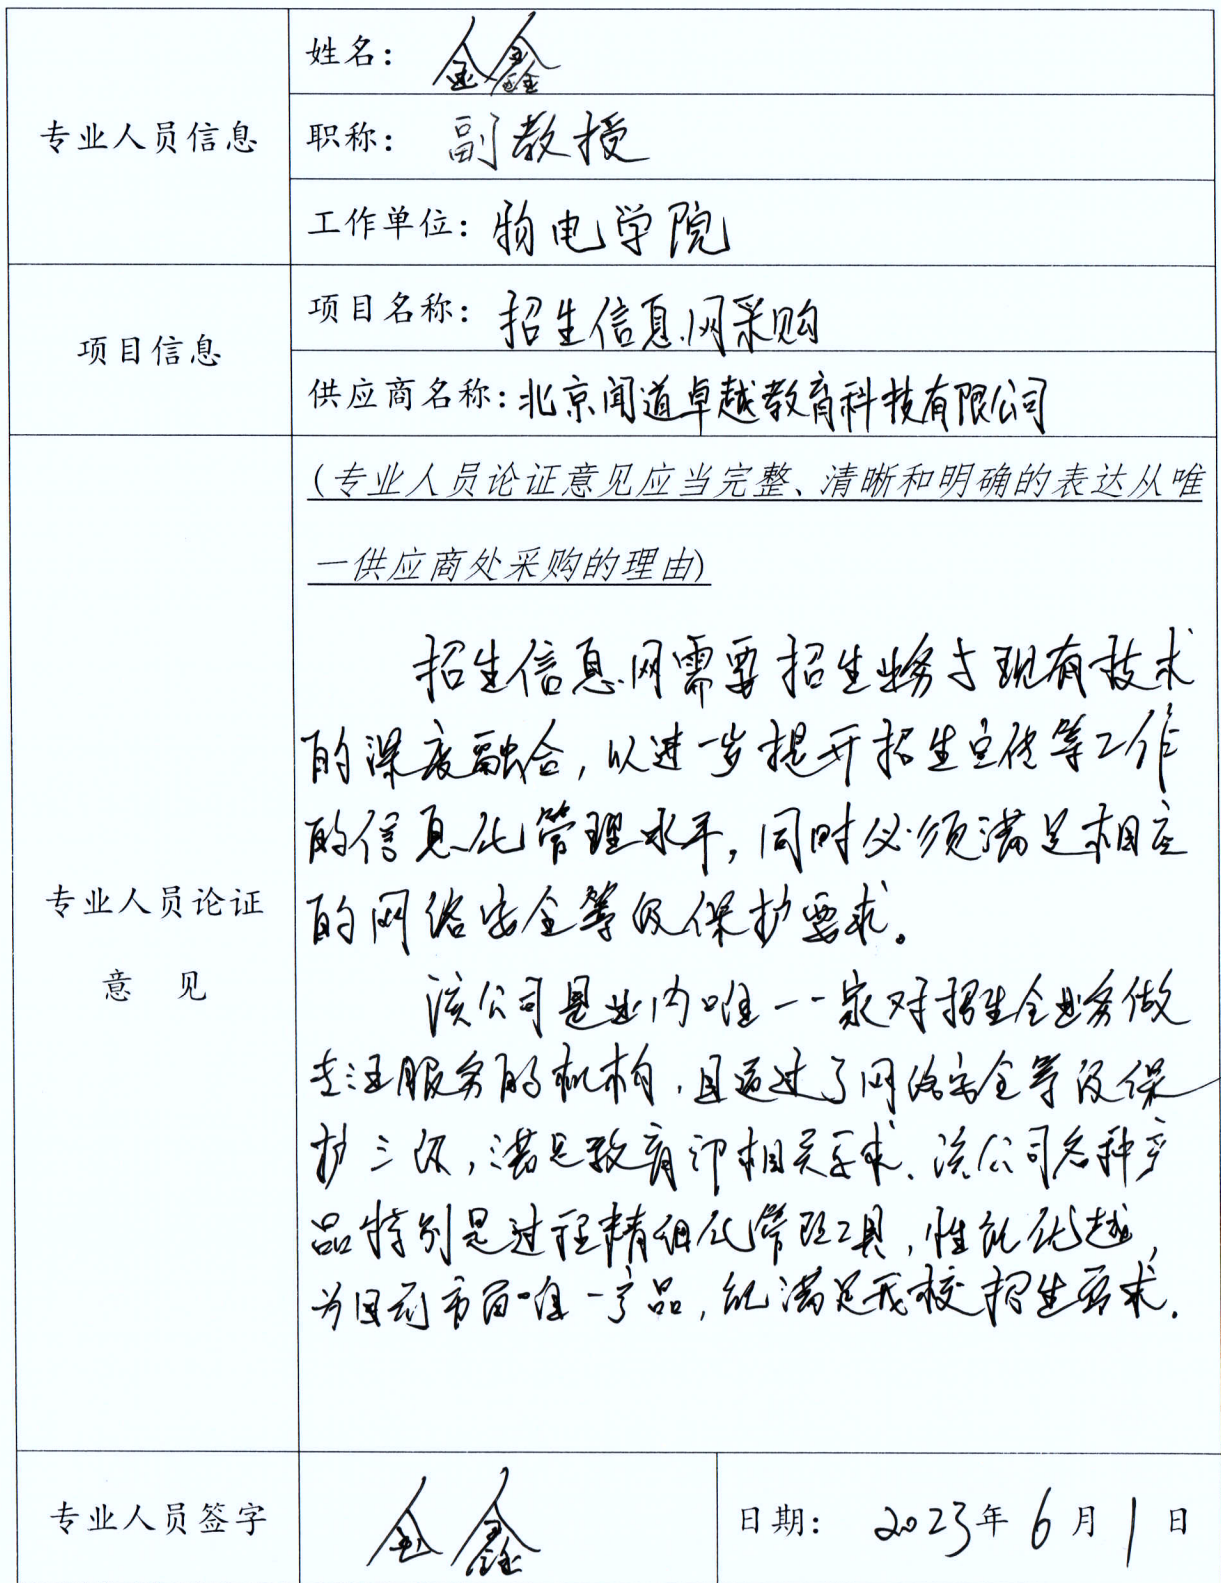 姓名：金鑫
专业人员信息
职称：副教授
工作单位：物电学院
项目名称：招生信息网采购
项目信息
供应商名称：北京闻道卓越教育科技有限公司
(专业人员论证意见应当完整、清晰和明确的表达从唯
一供应商处采购的理由)
招生信息网需要招生业务与现有技术
的深度融合，以进一步提升招生宣传等工作
的信息化管理水平，同时必须满足相应
的网络安全等级保护要求。
专业人员论证
意 见
该公司是业内唯一一家对招生全业务做
专注服务的机构，且通过了网络安全等级保
护三级，满足教育部相关要求、该公司各种产
品特别是过程精细化管理工具，性能优越，
为目前市面唯一产品，能满足我校招生要求.
专业人员签字
金鑫
日期：2023年6月1日